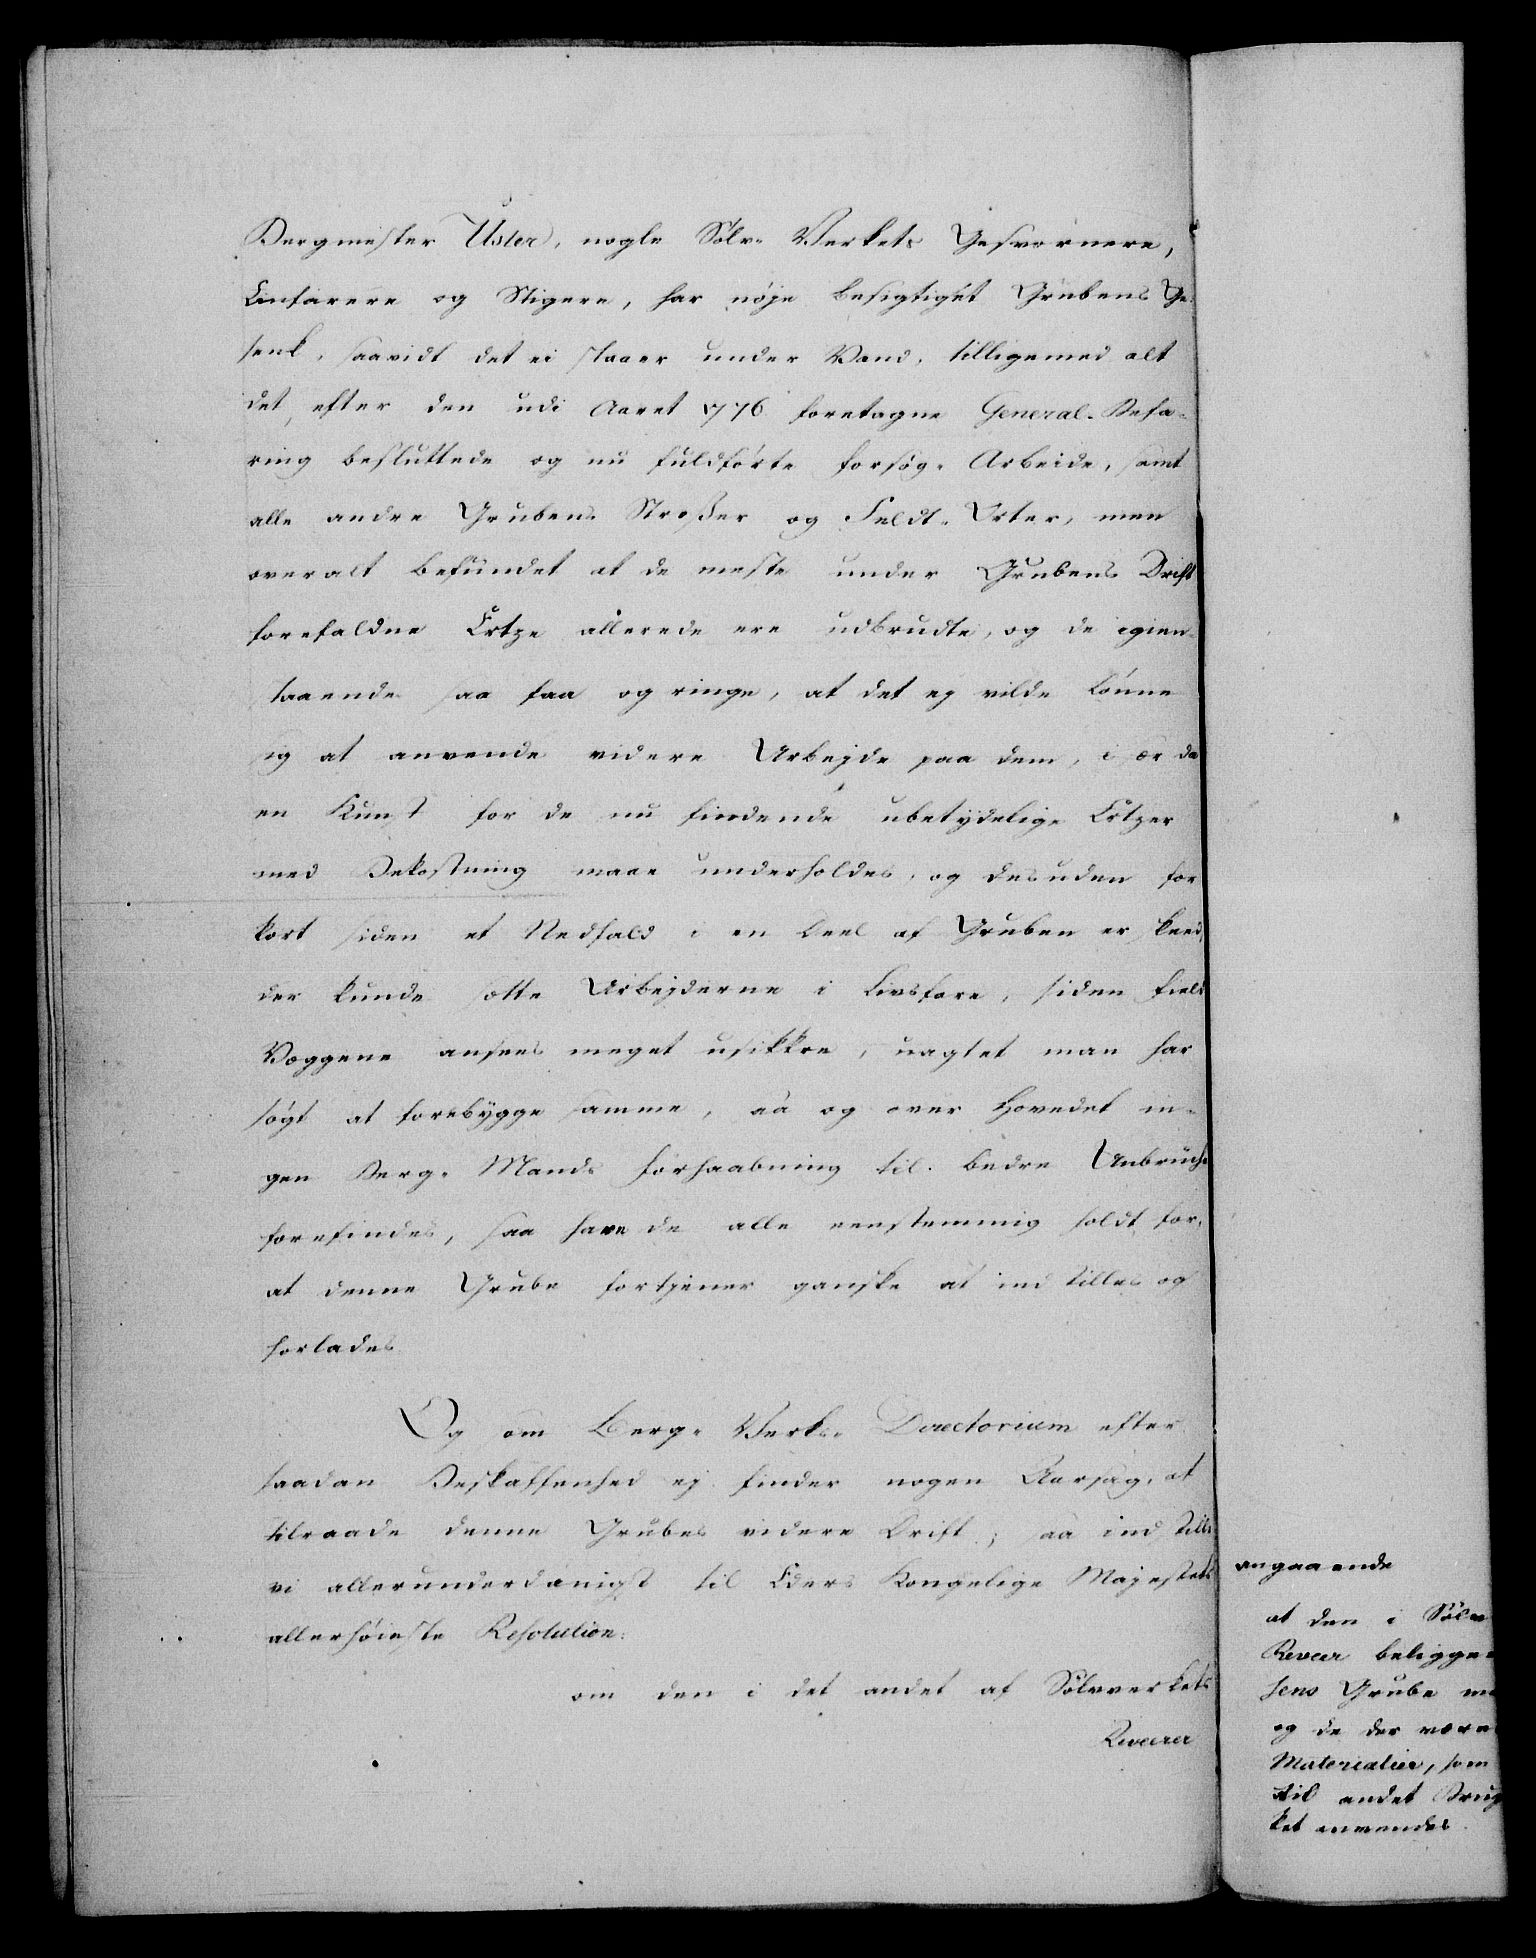 Bergmester Uster, nogle Sølv- Verkets Gesvornere,
Einfarere og Stigere, har nøje besigtiget Grubens Ge-
senk, saavidt det ei staaer under Vand, tilligemed alt
det, efter den udi Aaret 1776 foretagne General-Befa-
ring besluttede og nu fuldførte forsøg- Arbeide, samt
alle andre Grubens Strosser og Feldt- Orter, men
overalt befundet at de meste under Grubens Drift
forefaldne Ertze allerede ere udbrudte, og de igien-
staaende saa faa og ringe, at det ej vilde lønne
sig at anvende videre Arbejde paa dem, i sær da
en Kunst for de nu findende ubetydelige Ertzer
med Bekostning maae underholdes, og desuden for
kort siden et Nedfald i en Deel af Gruben er skeed,
der kunde sætte Arbejderne i Livsfare, siden Field
Væggene ansees meget usikkre, uagtet man har
søgt at forebygge samme, saa og over Hovedet in-
gen Berg- Mands forhaabning til bedre Anbrüche
forefindes, saa have de alle eenstemmig holdt for,
at denne Grube fortjener ganske at indstilles og
forlades
Og som Berg- Verks- Directorium efter
saadan Beskaffenhed ej finder nogen Aarsag, at
tilraade denne Grubes videre Drift; saa indstille
vi allerunderdanigst til Eders Kongelige Majestets
allerhøieste Resolution:
om den i det andet af Sølvverkets
Reveerer
angaaende
at den i Sølv
Reveer beligge
sens Grube
og de der være
Materialier, som
til andet Brug
ket anvendes.